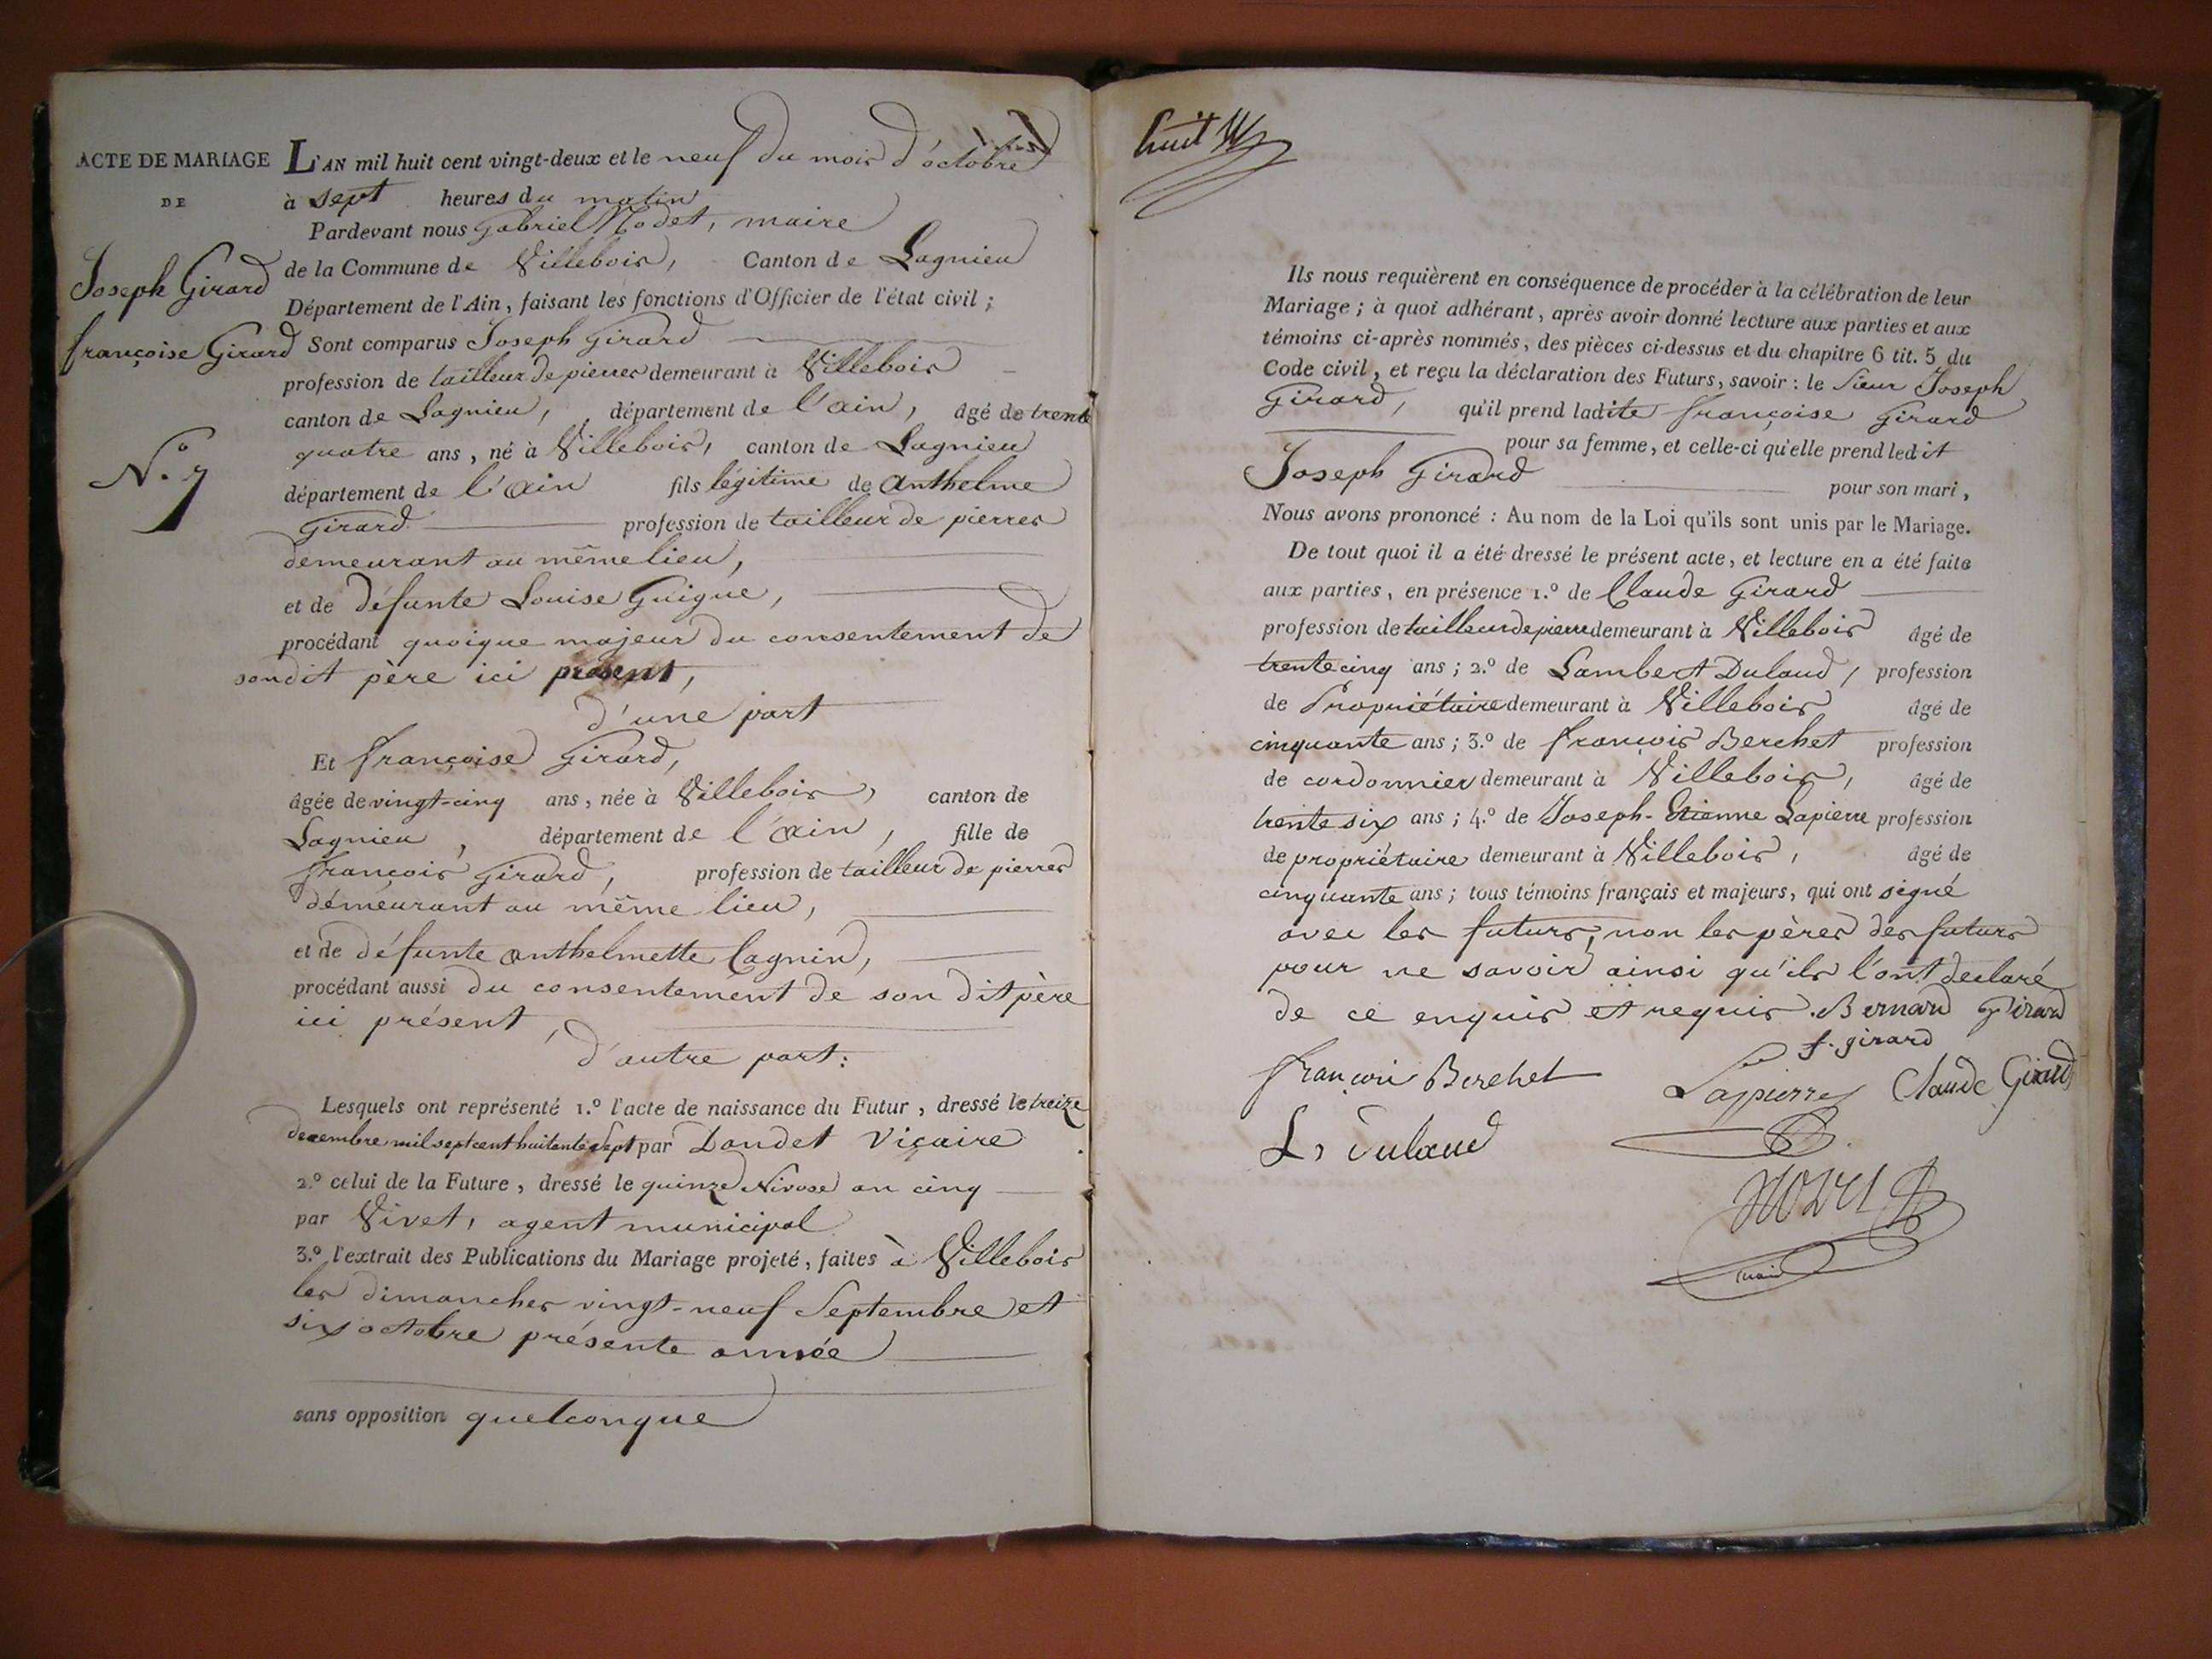 ACTE DE MARIAGE
DE
Joseph Girard
françoise Girard
N.º 7
L'AN mil huit cent vingt-deux et le neuf du mois d'octobre
à sept heures du matin
Pardevant nous Gabriel Nodet, maire
de la Commune de Villebois, Canton de Lagnieu
Département de l'Ain, faisant les fonctions d'Officier de l'état civil ;
Sont comparus Joseph Girard
profession de tailleur de pierres demeurant à Villebois
canton de Lagnieu, département de l'ain, âgé de trente
quatre ans, né à Villebois, canton de Lagnieu
département de l'ain fils légitime de anthelme
Girard profession de tailleur de pierres
demeurant au même lieu,
et de défunte Louise Guigue,
procédant quoique majeur du consentement de
sondit père ici présent,
d'une part
Et françoise Girard,
âgée de vingt-cinq ans, née à Villebois, canton de
Lagnieu, département de l'ain, fille de
françois Girard, profession de tailleur de pierres
demeurant au même lieu,
et de défunte anthelmette Cagnin,
procédant aussi du consentement de son dit père
ici présent,
d'autre part:
Lesquels ont représenté 1.º l'acte de naissance du Futur, dressé le treize
decembre mil sept cent huitante sept par Dondet Viçaire
2.º celui de la Future, dressé le quinze Nivose an cinq
par Vivet, agent municipal
3.º l'extrait des Publications du Mariage projeté, faites à Villebois
les dimanches vingt-neuf Septembre et
six octobre présente année
sans opposition quelconque
huit
Ils nous requièrent en conséquence de procéder à la célébration de leur
Mariage ; à quoi adhérant, après avoir donné lecture aux parties et aux
témoins ci-après nommés, des pièces ci-dessus et du chapitre 6 tit. 5 du
Code civil, et reçu la déclaration des Futurs, savoir : le Sieur Joseph
Girard, qu'il prend ladite françoise Girard
pour sa femme, et celle-ci qu'elle prend ledit
Joseph Girard pour son mari,
Nous avons prononcé : Au nom de la Loi qu'ils sont unis par le Mariage.
De tout quoi il a été dressé le présent acte, et lecture en a été faite
aux parties, en présence 1.º de Claude Girard
profession de tailleur de pierre demeurant à Villebois âgé de
trente cinq ans ; 2.º de Lambert Dulaud, profession
de Propriétaire demeurant à Villebois âgé de
cinquante ans ; 3.º de françois Berchet profession
de cordonnier demeurant à Villebois, âgé de
trente six ans ; 4.º de Joseph-Etienne Lapierre profession
de propriétaire demeurant à Villebois, âgé de
cinquante ans ; tous témoins français et majeurs, qui ont signé
avec les futurs, non les pères des futurs
pour ne savoir ainsi qu'ils l'ont declaré
de ce enquis et requis. Bernard Girard
f. girard
françoi Berchet Lapierre Claude Girard
L, Dulaud
NODET
maire